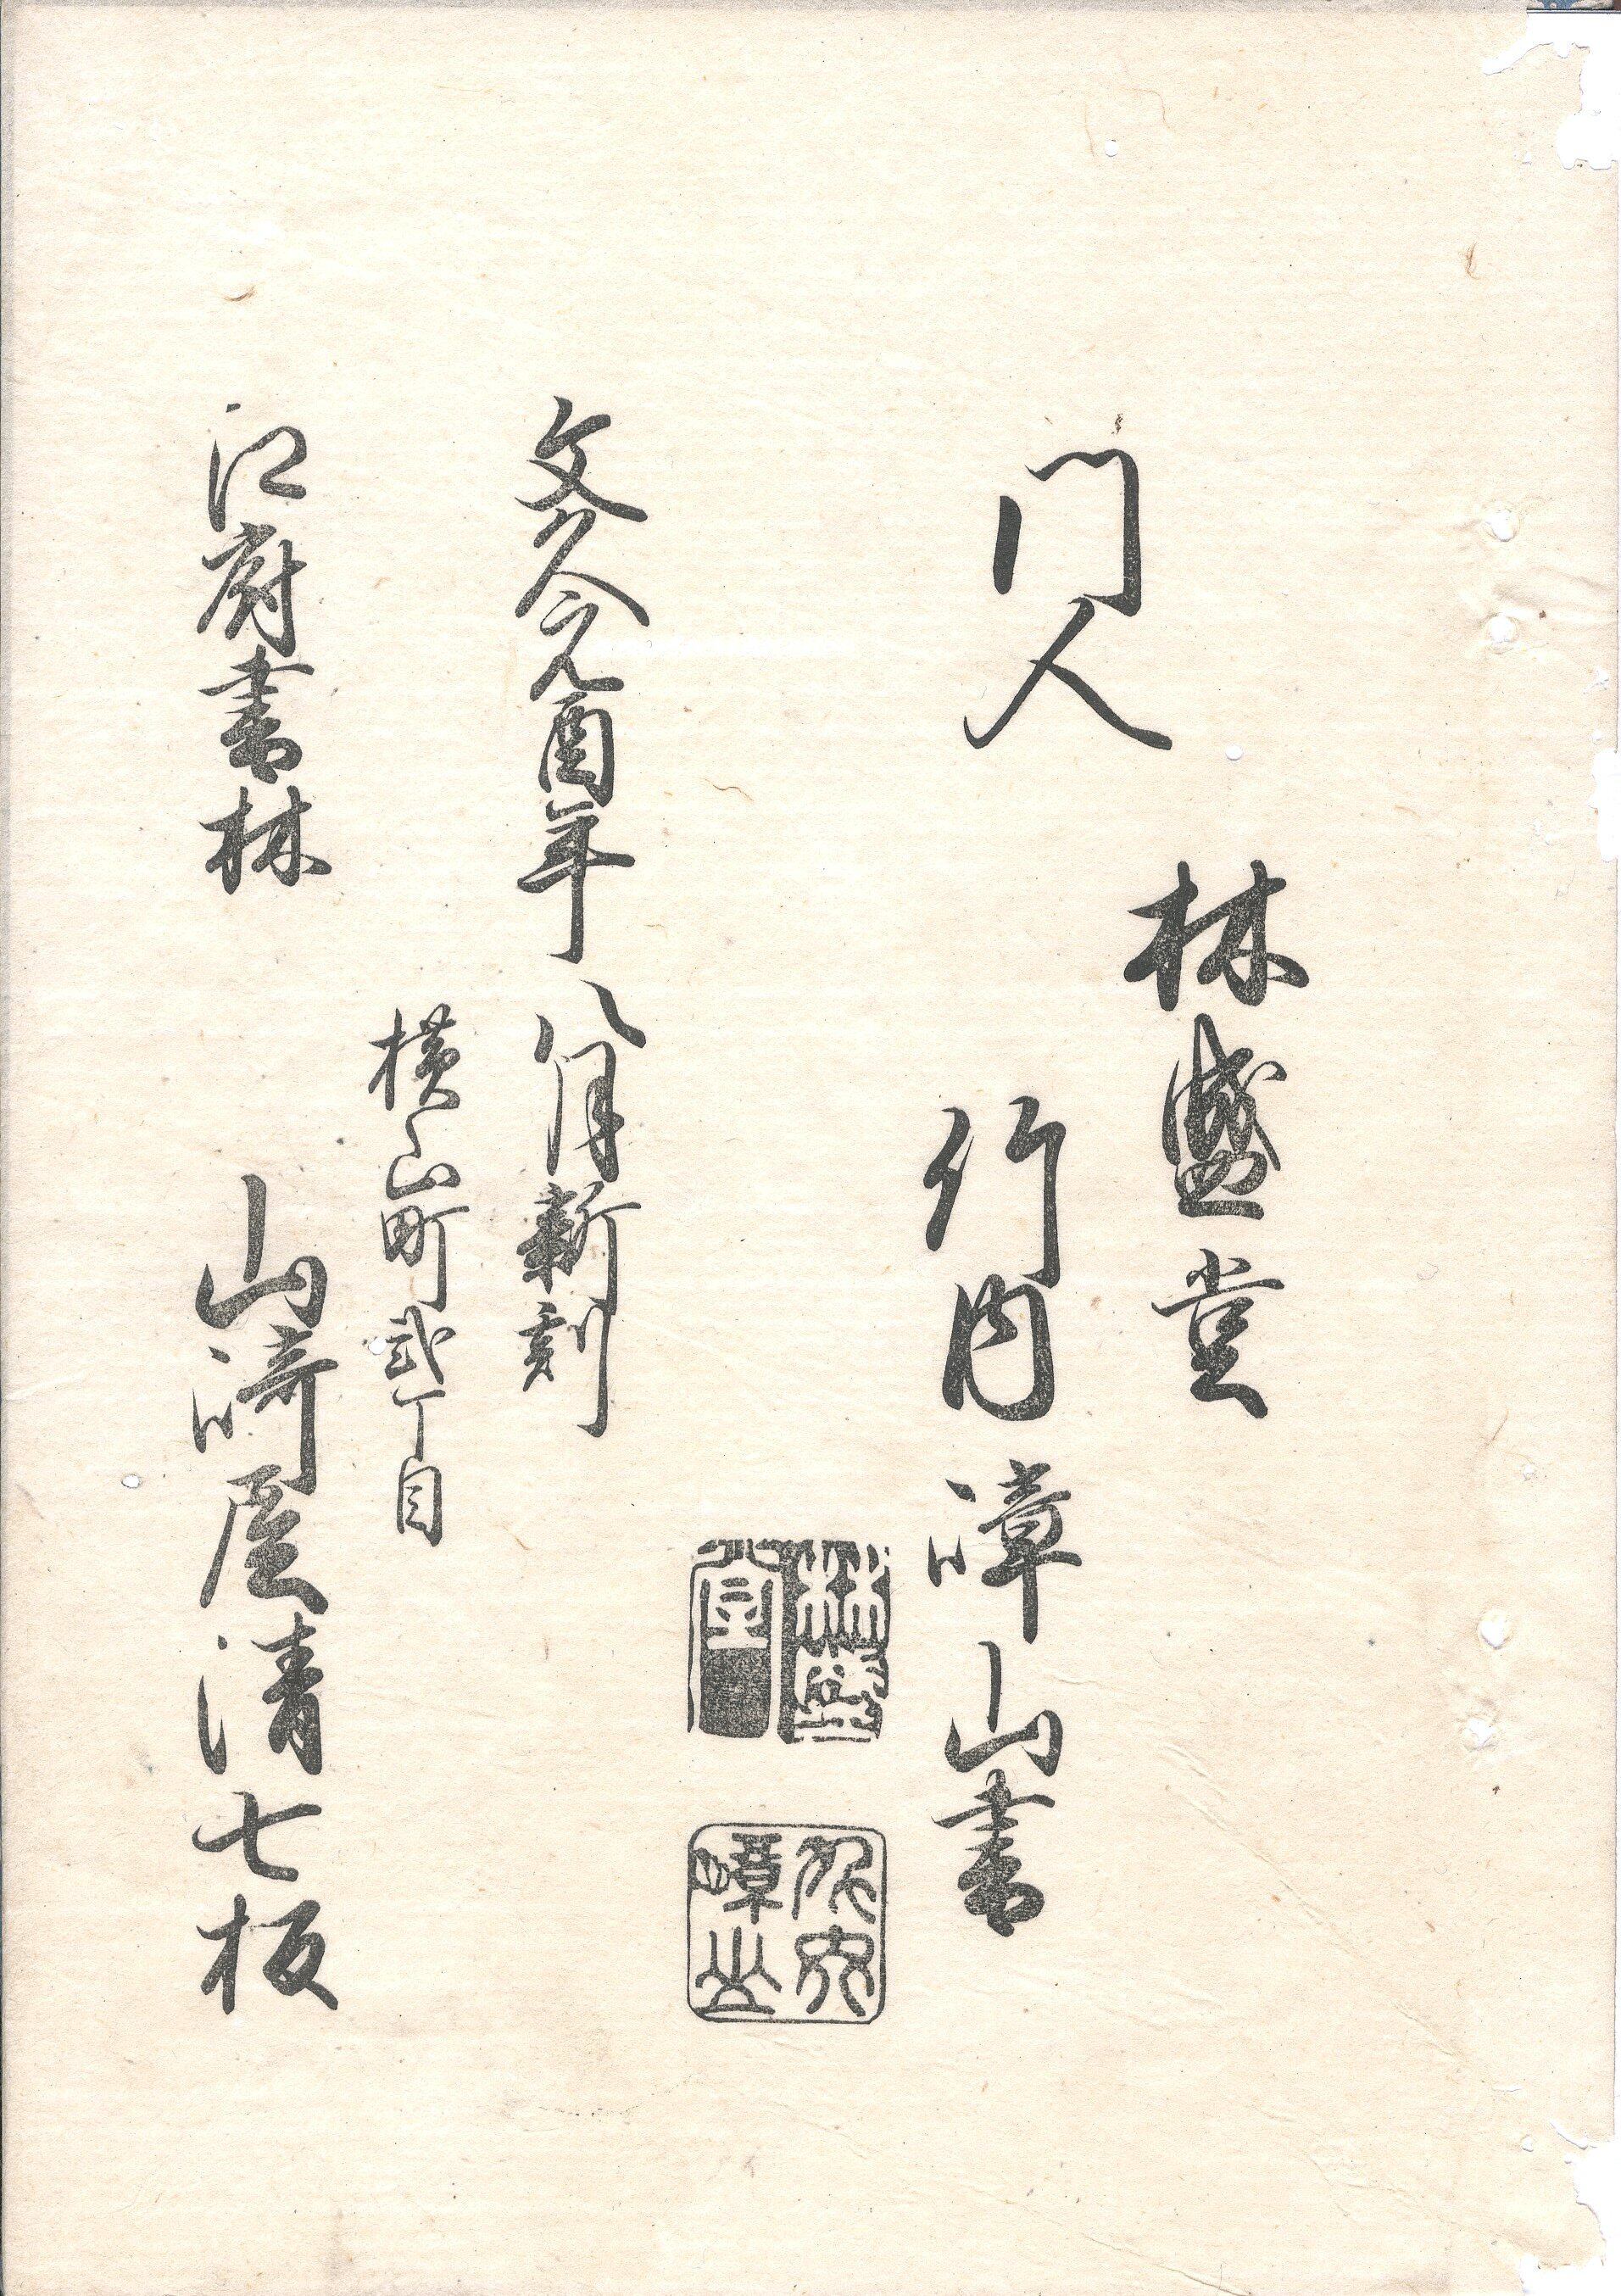 門人
林盛堂
竹内嶂山書
林盛
堂
文久元酉年八月新刻
横山町弐丁目
江府書林
山崎屋清七板